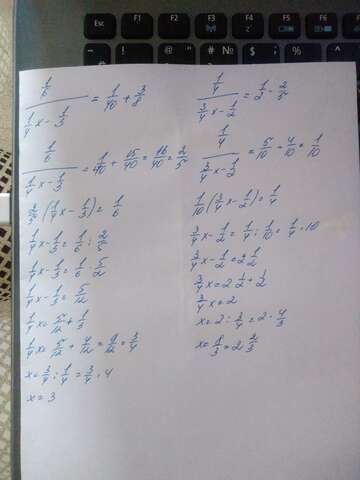 Esc
1/6 / (1/4 x - 1/3) = 1/40 + 3/8
1/6 / (1/4 x - 1/3) = 1/40 + 15/40 = 16/40 = 2/5
2/5 (1/4 x - 1/3) = 1/6
1/4 x - 1/3 = 1/6 : 2/5
1/4 x - 1/3 = 1/6 · 5/2
1/4 x - 1/3 = 5/12
1/4 x = 5/12 + 1/3
1/4 x = 5/12 + 4/12 = 9/12 = 3/4
x = 3/4 : 1/4 = 3/4 · 4
x = 3
1/4 / (3/4 x - 1/2) = 1/2 - 2/5
1/4 / (3/4 x - 1/2) = 5/10 - 4/10 = 1/10
1/10 (3/4 x - 1/2) = 1/4
3/4 x - 1/2 = 1/4 : 1/10 = 1/4 · 10
3/4 x - 1/2 = 2 1/2
3/4 x = 2 1/2 + 1/2
3/4 x = 2
x = 2 : 3/4 = 2 · 4/3
x = 8/3 = 2 2/3